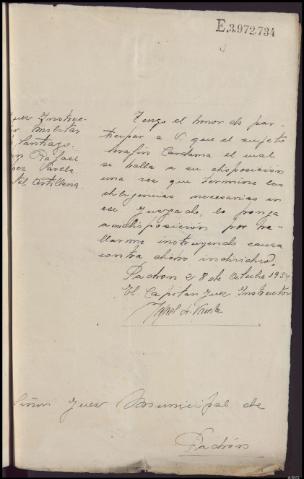 E3.972.734
Juez Instruc-
Militar
Santiago.
Rafael
López Varela
Artillería
Tengo el honor de par-
ticipar a V. que el sujeto
Serafín Cardama el cual
se halla a su disposición
una vez que termine las
diligencias necesarias en
ese Juzgado, lo ponga
a mi disposición por ha-
llarme instruyendo causa
contra dicho individuo.
Padron 8 de Octubre 193
El Capitan Juez Instructor
Señor Juez Municipal de
Padrón